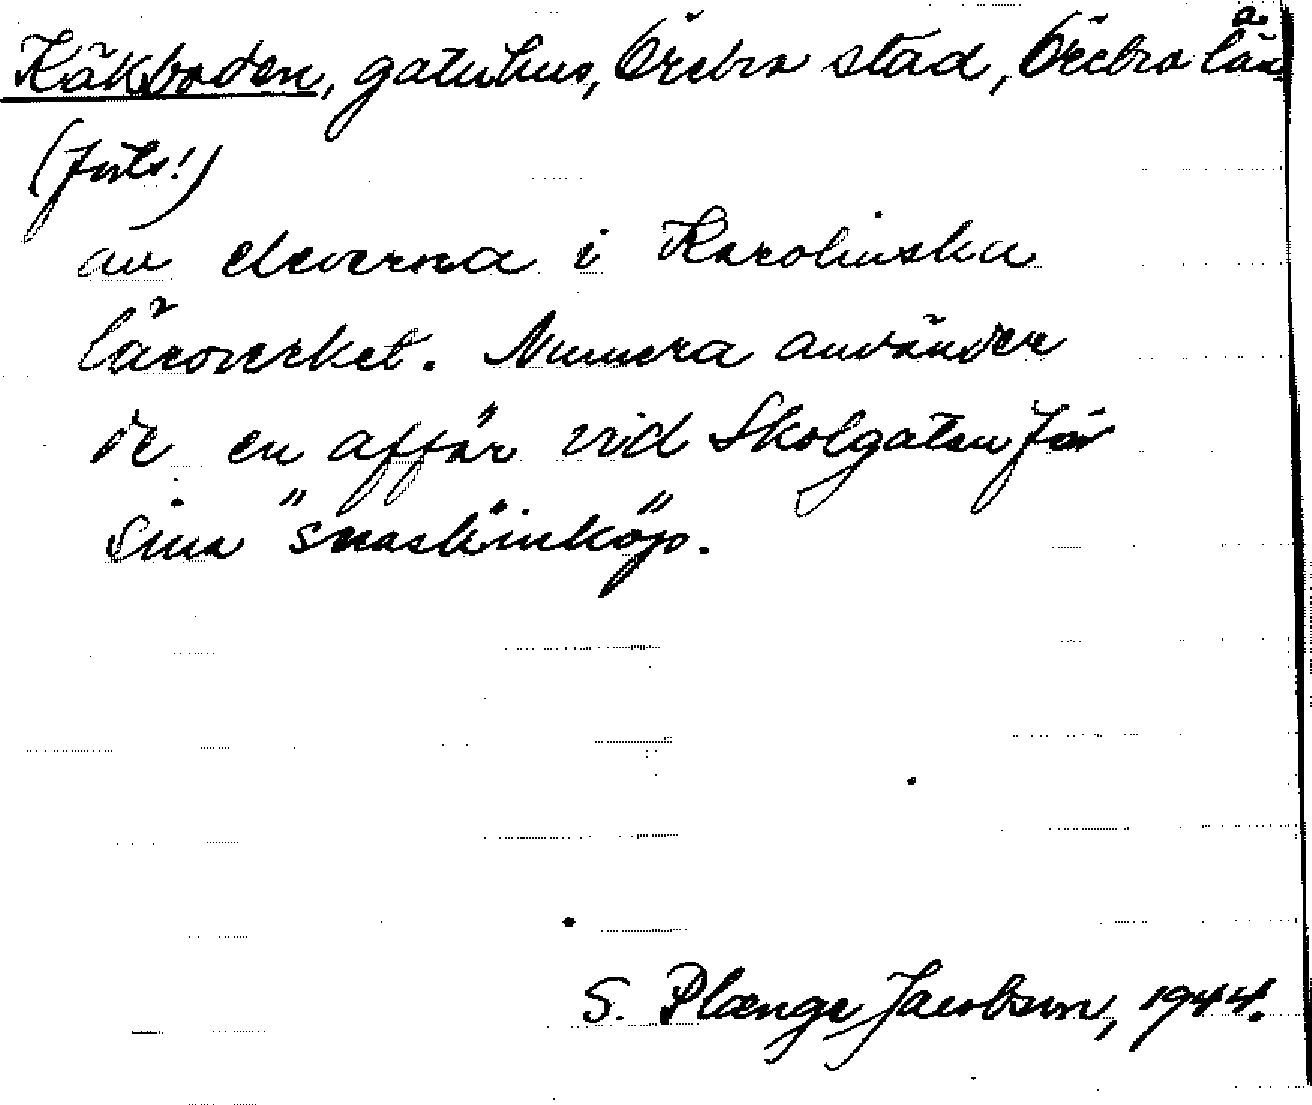 Käkboden, gatuhus, Örebro stad, Örebro län
(forts!)
av eleverna i Karolinska
läroverket. Numera använder
de en affär vid Skolgatan för
sina "snask"inköp.
S. Plænge Jacobson, 1944.